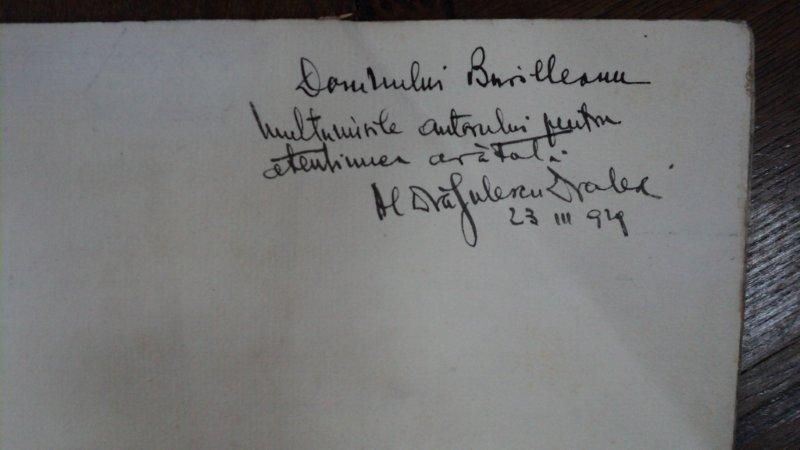 Domnului Burilleanu
Multumirile autorului pentru
atentiunea arătată.
Al Drăgulescu Dralex
23 III 929